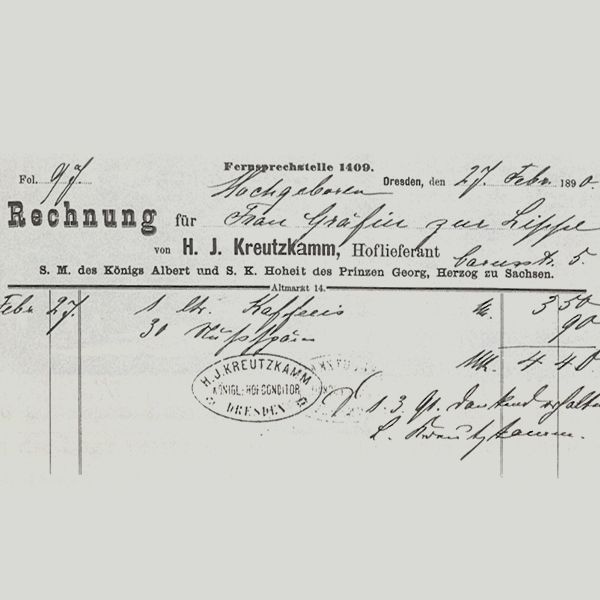 Fernsprechstelle 1409.
Fol. 97. Dresden, den 27. Febr. 1890.
Hochgeboren
Rechnung für Frau Gräfin zur Lippe
von H. J. Kreutzkamm, Hoflieferant Carusstr. 5.
S. M. des Königs Albert und S. K. Hoheit des Prinzen Georg, Herzog zu Sachsen.
Altmarkt 14.
Febr 27. 1 ltr. Kaffeeis M. 3 50
30 Nußspäne 90
Mk. 4 40
H. J. KREUTZKAMM
KÖNIGL. HOFCONDITOR
DRESDEN
1. 3. 90. dankend erhalten
Kreutzkamm.